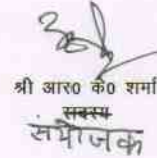 श्री आर० के० शर्मा
सदस्य
संयोजक